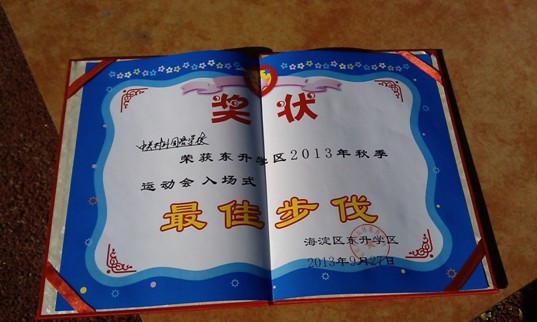 奖状
荣获东升学区2013年秋季
运动会入场式
最佳步伐
海淀区东升学区
2013年9月27日